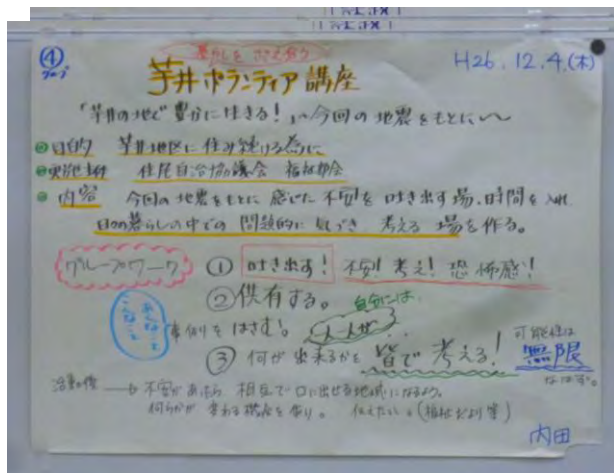 ④
グループ
暮らしを 支え合う
芋井ボランティア講座
H26.12.4.(木)
"芋井の地で豊かに生きる!"〜今回の地震をもとに〜
目的 芋井地区に住み続ける為に
実施主体 住民自治協議会 福祉部会
内容 今回の地震をもとに 感じた 不安を 吐き出す場、時間を 入れ
日々の暮らしの中での 問題点に 気づき 考える 場を作る。
グループワーク
① 吐き出す! 不安! 考え! 恐怖感!
② 供有する。
自分には、
あんなこと
こんなこと
事例をはさむ。
一人が
③ 何が出来るかを 皆で 考える!
可能性は
無限
なはず。
不安があったら 相互で口に出せる地域になるよう。
何らかが 変わる 講座を 作り。 伝えたい。(福祉だより等)
内田